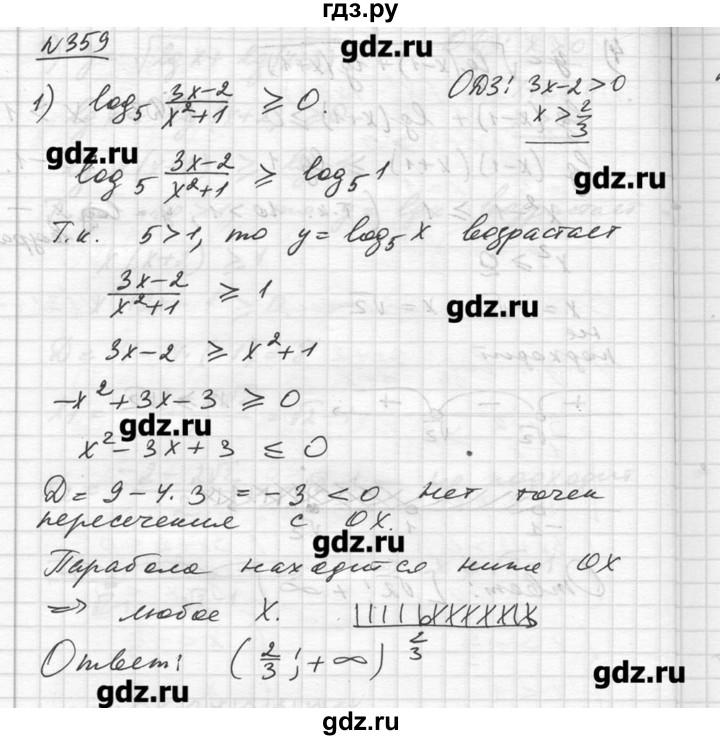 гдз.ру
№359
gdz.ru
1) log₅ (3x-2)/(x²+1) ≥ 0.
ОДЗ: 3x-2>0
x > 2/3
gdz.ru
gdz.ru
log₅ (3x-2)/(x²+1) ≥ log₅1
Т.к. 5>1, то y = log₅x возрастает
(3x-2)/(x²+1) ≥ 1
gdz.ru
3x-2 ≥ x²+1
-x²+3x-3 ≥ 0
gdz.ru
x²-3x+3 ≤ 0
D = 9-4·3 = -3 < 0 нет точек
пересечения с OX.
gdz.ru
Парабола находится ниже OX
=> любое x.
2/3
Ответ: (2/3; +∞)
gdz.ru
gdz.ru
gdz.ru